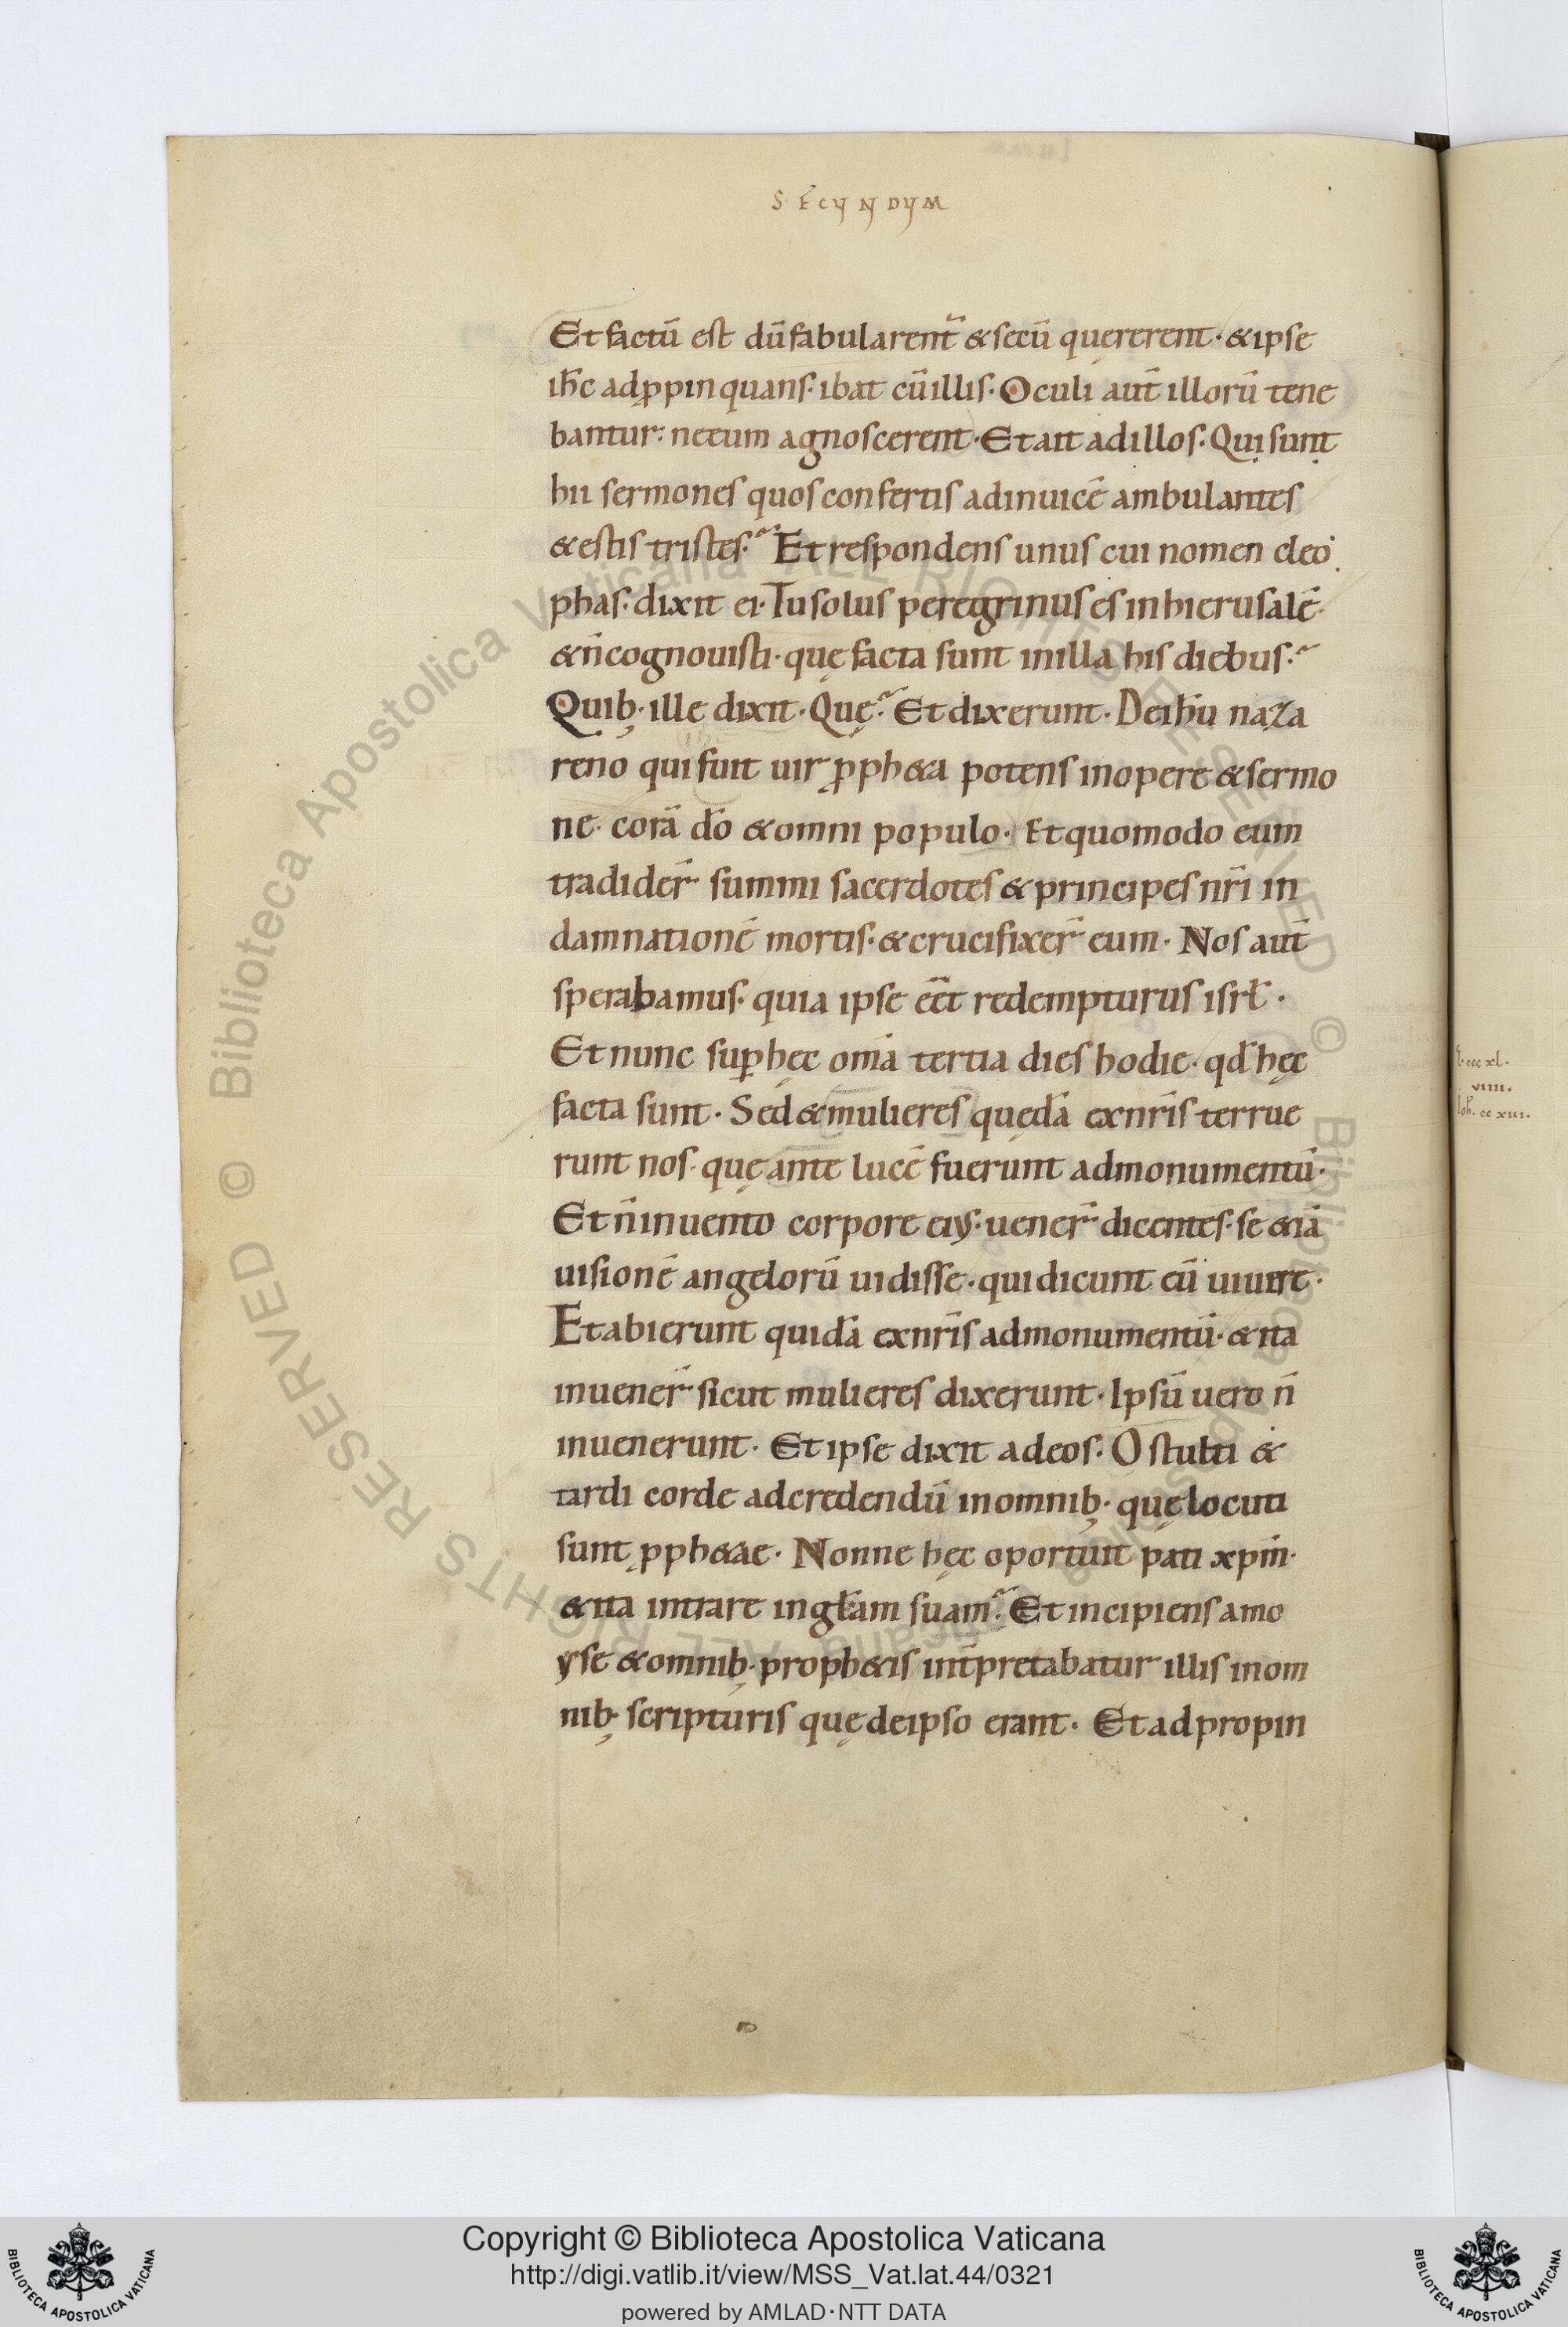 SECUNDUM
Et factū est dū fabularent̄ & secū quererent · & ipse
ih̄c adp̱pinquans · ibat cū illis · Oculi aut̄ illorū tene
bantur · ne eum agnoscerent · Et ait ad illos · Qui sunt
hii sermones quos confertis adinuicē ambulantes
& estis tristes · Et respondens unus cui nomen cleo
phas · dixit ei · Tu solus peregrinus es in hierusalē ·
& n̄ cognouisti · quę facta sunt in illa his diebus ·
Quib; · ille dixit · Quę · Et dixerunt · De ih̄u naza
reno qui fuit uir p̱ph&a potens in opere & sermo
ne · corā d̄o & omni populo · Et quomodo eum
tradider̄ summi sacerdotes & principes nr̄i in
damnationē mortis · & crucifixer̄ eum · Nos aut̄
sperabamus · quia ipse ēēt redempturus isrł ·
Et nunc sup̱ hęc om̄a tertia dies hodie · qd̄ hęc
facta sunt · Sed & mulieres quędā ex nr̄is terrue
runt nos · quę ante lucē fuerunt ad monumentū ·
Et n̄ inuento corpore eiꝰ · uener̄ dicentes · se &iā
uisionē angelorū uidisse · qui dicunt eū uiuere ·
Et abierunt quidā ex nr̄is ad monumentū · & ita
inuener̄ sicut mulieres dixerunt · Ipsū uero n̄
inuenerunt · Et ipse dixit ad eos · O stulti &
tardi corde ad credendū in omnib; · quę locuti
sunt p̱ph&ae · Nonne hęc oportuit pati xpm̄ ·
& ita intrare in głam suam · Et incipiens a mo
yse & omnib; · proph&is int̄pretabatur illis in om
nib; scripturis quę de ipso erant · Et adpropin
L. ccc xl.
viiii.
Ioh̄. cc xiii.
© Biblioteca Apostolica Vaticana ALL RIGHTS RESERVED © Biblioteca Apostolica Vaticana ALL RIGHTS RESERVED
Copyright © Biblioteca Apostolica Vaticana
http://digi.vatlib.it/view/MSS_Vat.lat.44/0321
powered by AMLAD·NTT DATA
BIBLIOTECA APOSTOLICA VATICANA
BIBLIOTECA APOSTOLICA VATICANA